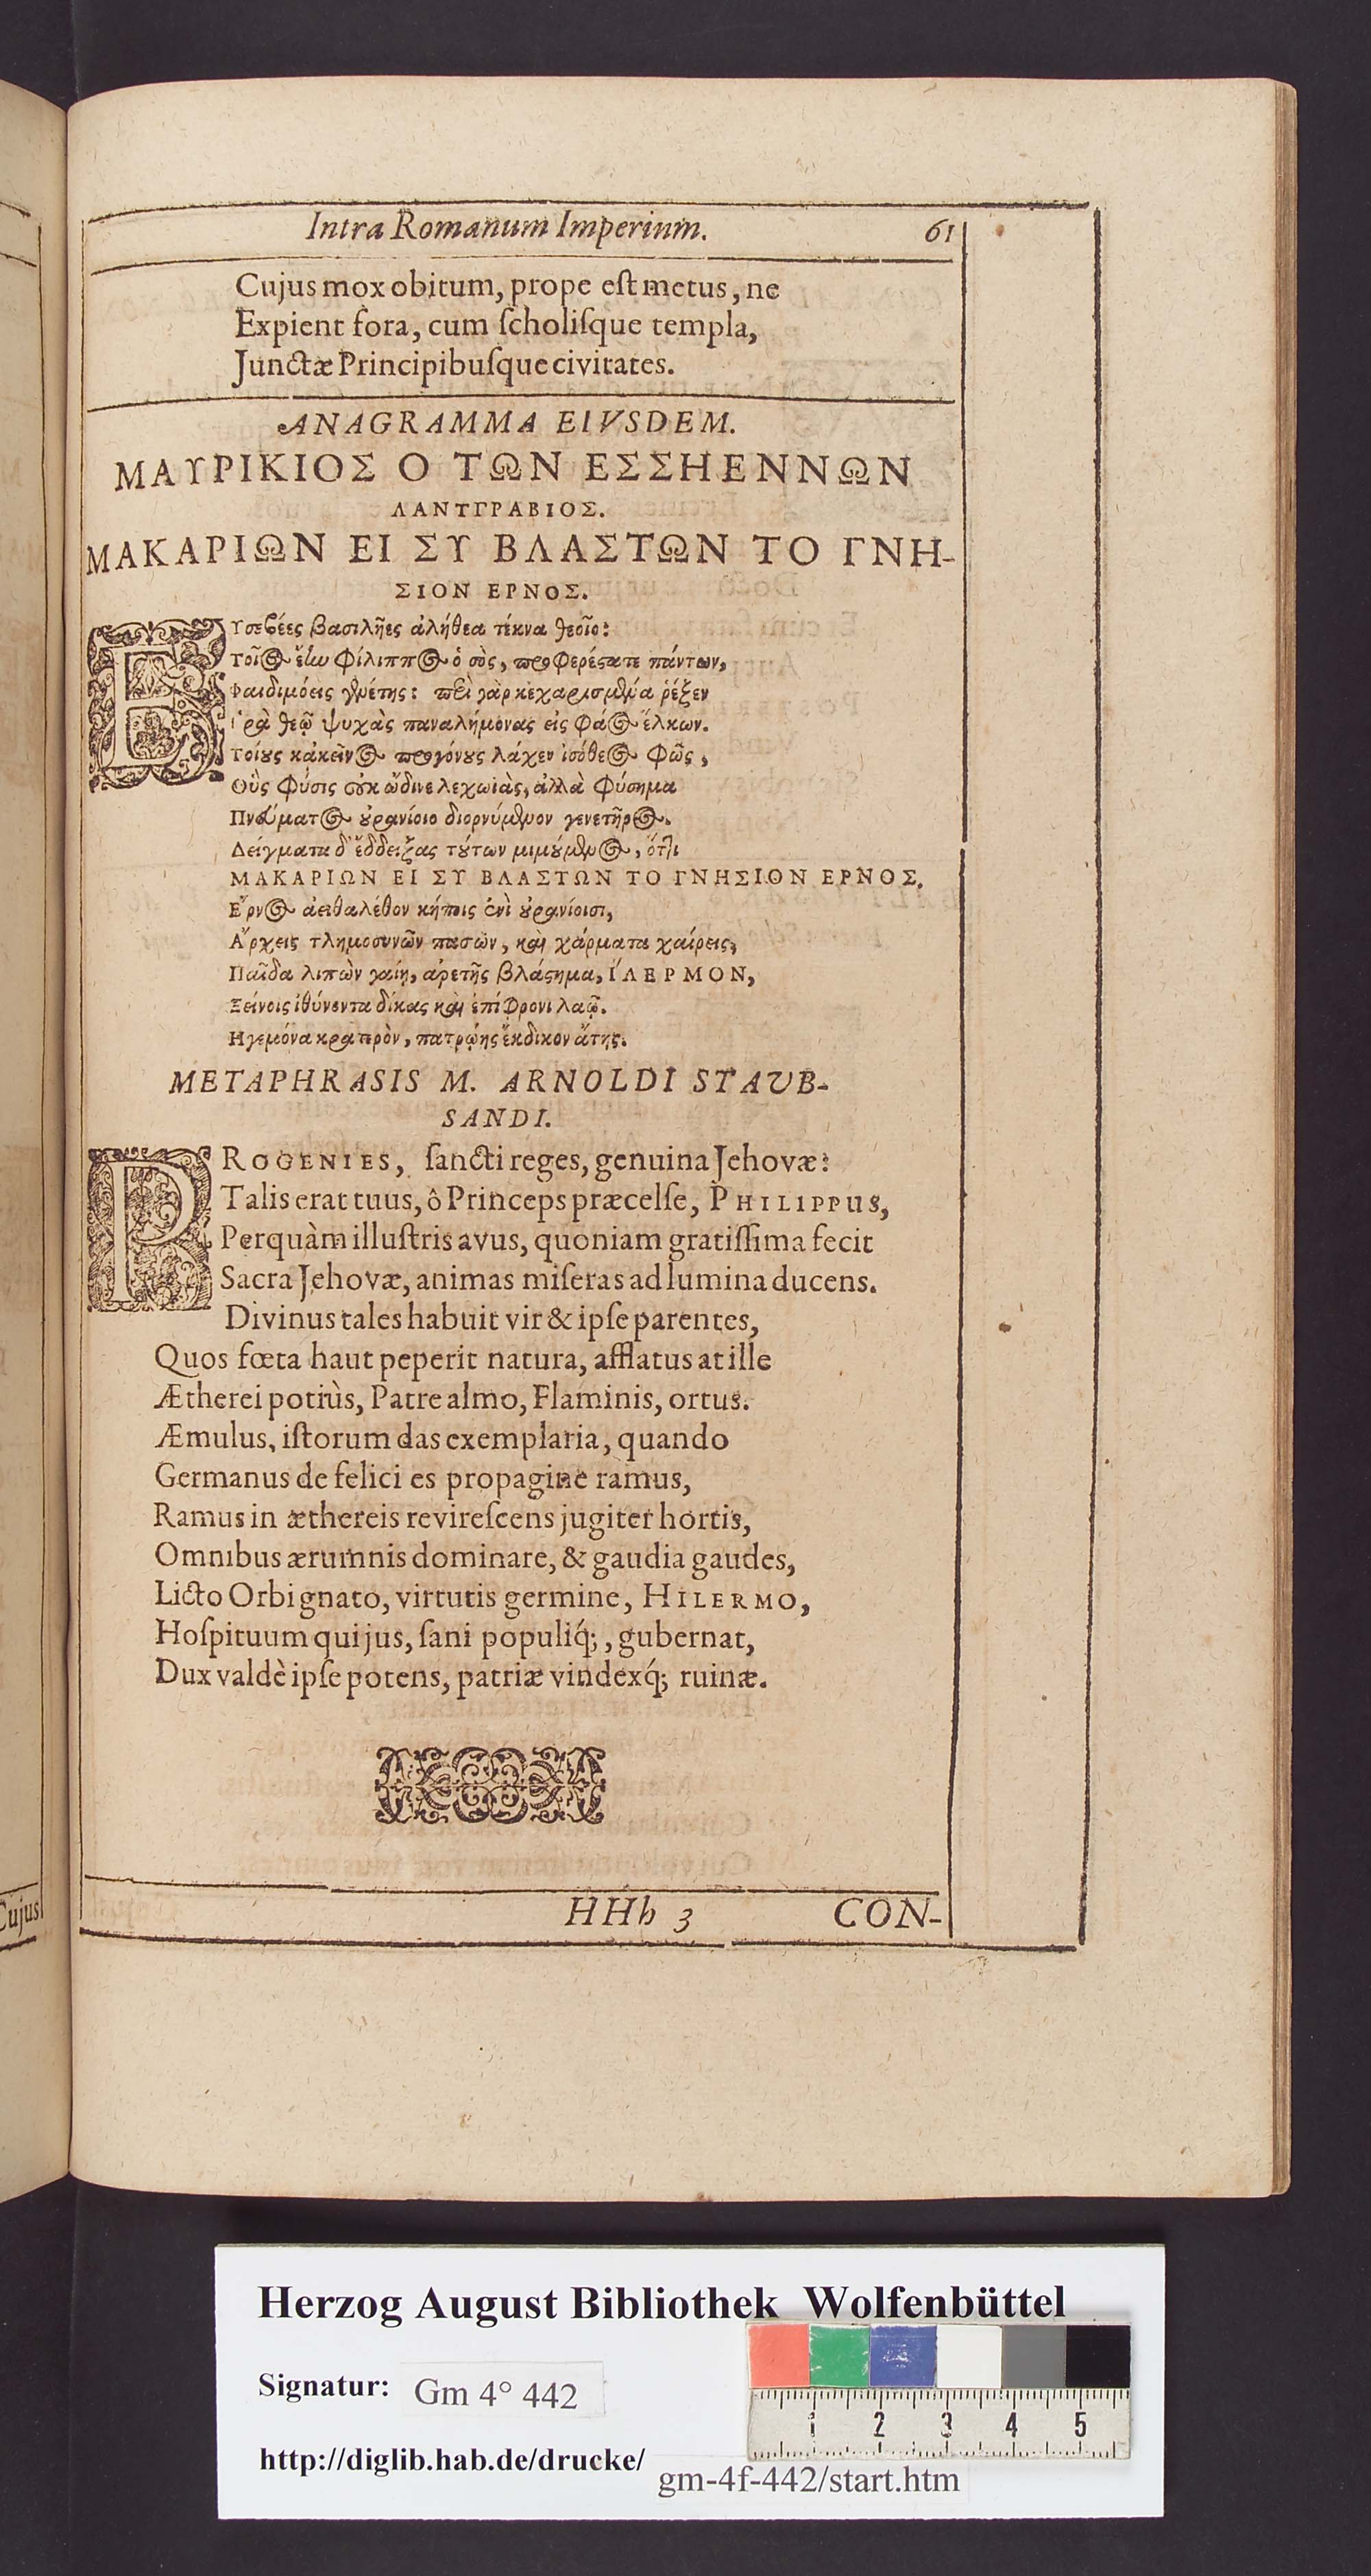 Intra Romanum Imperium. 61
Cujus mox obitum, prope eſt metus, ne
Expient fora, cum ſcholiſque templa,
Junctæ Principibuſque civitates.
ANAGRAMMA EIVSDEM.
ΜΑΥΡΙΚΙΟΣ Ο ΤΩΝ ΕΣΣΗΕΝΝΩΝ
ΛΑΝΤΓΡΑΒΙΟΣ.
ΜΑΚΑΡΙΩΝ ΕΙ ΣΥ ΒΛΑΣΤΩΝ ΤΟ ΓΝΗ-
ΣΙΟΝ ΕΡΝΟΣ.
ΕΥσεβέες βασιλῆες ἀλήθεα τέκνα θεοῖο:
Τοῖος ἔην Φίλιππος ὁ σὸς, προφερέϛατε πάντων,
Φαιδιμόεις γενέτης: περὶ γὰρ κεχαρισμένα ῥέξεν
Ἱρὰ θεῷ ψυχὰς παναλήμονας εἰς φάος ἕλκων.
Τοίους κἀκεῖνος προγόνους λάχεν ἰσόθεος φῶς,
Οὓς φύσις οὐκ ὤδινε λεχωιὰς, ἀλλὰ φύσημα
Πνεύματος οὐρανίοιο διορνύμενον γενετῆρος.
Δείγματα δ' ἔδδειξας τούτων μιμούμενος, ὅτι
ΜΑΚΑΡΙΩΝ ΕΙ ΣΥ ΒΛΑΣΤΩΝ ΤΟ ΓΝΗΣΙΟΝ ΕΡΝΟΣ.
Ἔρνος ἀειθαλέθον κήποις ἐνὶ οὐρανίοισι,
Ἄρχεις τλημοσυνῶν πασῶν, καὶ χάρματα χαίρεις,
Παῖδα λιπὼν γαίῃ, ἀρετῆς βλάϛημα, ἹΛΕΡΜΟΝ,
Ξείνοις ἰθύνοντα δίκας καὶ ἐπίφρονι λαῷ.
Ηγεμόνα κρατερὸν, πατρῴης ἔκδικον ἄτης.
METAPHRASIS M. ARNOLDI STAUB-
SANDI.
PROGENIES, ſancti reges, genuina Jehovæ:
Talis erat tuus, ô Princeps præcelſe, PHILIPPUS,
Perquàm illuſtris avus, quoniam gratiſſima fecit
Sacra Jehovæ, animas miſeras ad lumina ducens.
Divinus tales habuit vir & ipſe parentes,
Quos fœta haut peperit natura, afflatus at ille
Ætherei potiùs, Patre almo, Flaminis, ortus.
Æmulus, iſtorum das exemplaria, quando
Germanus de felici es propagine ramus,
Ramus in æthereis revireſcens jugiter hortis,
Omnibus ærumnis dominare, & gaudia gaudes,
Licto Orbi gnato, virtutis germine, HILERMO,
Hoſpituum qui jus, ſani populiq́;, gubernat,
Dux valdè ipſe potens, patriæ vindexq́; ruinæ.
HHh 3 CON-
Cujus
Herzog August Bibliothek Wolfenbüttel
Signatur: Gm 4° 442
http://diglib.hab.de/drucke/ gm-4f-442/start.htm
1 2 3 4 5